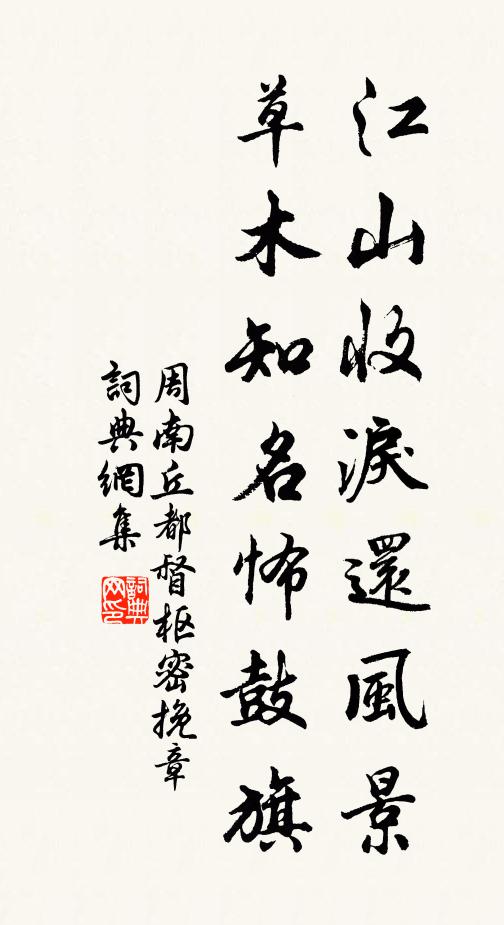 江山收淚還風景
草木知名怖鼓旗
周南丘都督枢密挽章
詞典網集
詞典網印